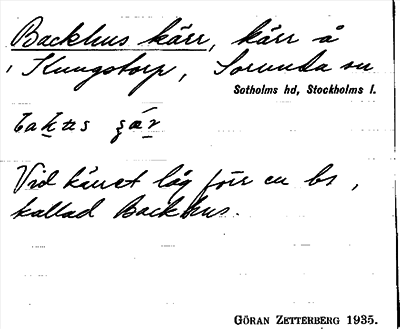 Backhus kärr, kärr å
, Kungstorp, Sorunda sn
Sotholms hd, Stockholms l.
Vid kärret låg förr en bs,
kallad Backhus.
GÖRAN ZETTERBERG 1935.